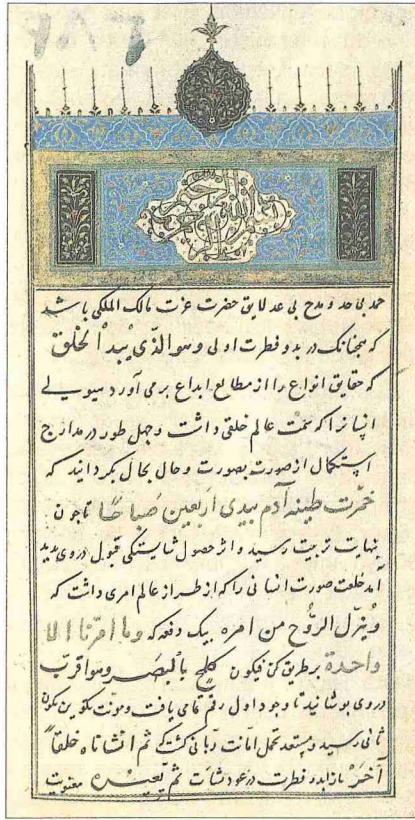 بسم الله الرحمن الرحيم
حمد بی حد و مدح بی عد لایق حضرت عزت مالک الملکی باشد
که همچنانک در بدو فطرت اولی وهو الذی یبدأ الخلق
که حقایق انواع را از مطالع ابداع برمی آورد هیولی
انسانرا که سمت عالم خلقی داشت و چهل طور در مدارج
استکمال از صورت بصورت و حال بحال بگردانید که
خمرت طینة آدم بیدی اربعین صباحا تا چون
بنهایت تربیت رسید و اثر حصول شایستگی قبول در وی پدید
آمد خلعت صورت انسانی را که از طراز عالم امری داشت که
وینزل الروح من امره بیک دفعه که وما امرنا الا
واحدة بر طریق کن فیکون کلمح بالبصر وهو اقرب
در وی پوشانید تا وجود اول رقم تمامی یافت و نوبت بکون
ثانی رسید و مستعد تحمل امانت ربانی گشت که ثم انشاناه خلقا
آخر باز ابد و فطرت در عود نشات ثم یعیده معنویت